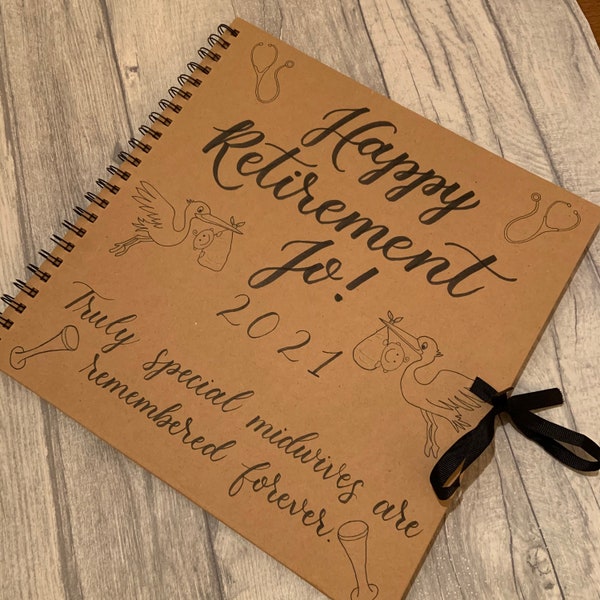 Happy
Retirement
Jo!
2021
Truly special midwives are
remembered forever.